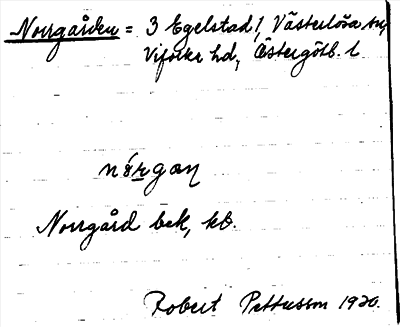 Norrgården = 3 Egelstad /, Västerlösa sn,
Vifolka hd, Östergötl. l
nórgan
Norrgård bek, kb.
Robert Pettersson 1920.